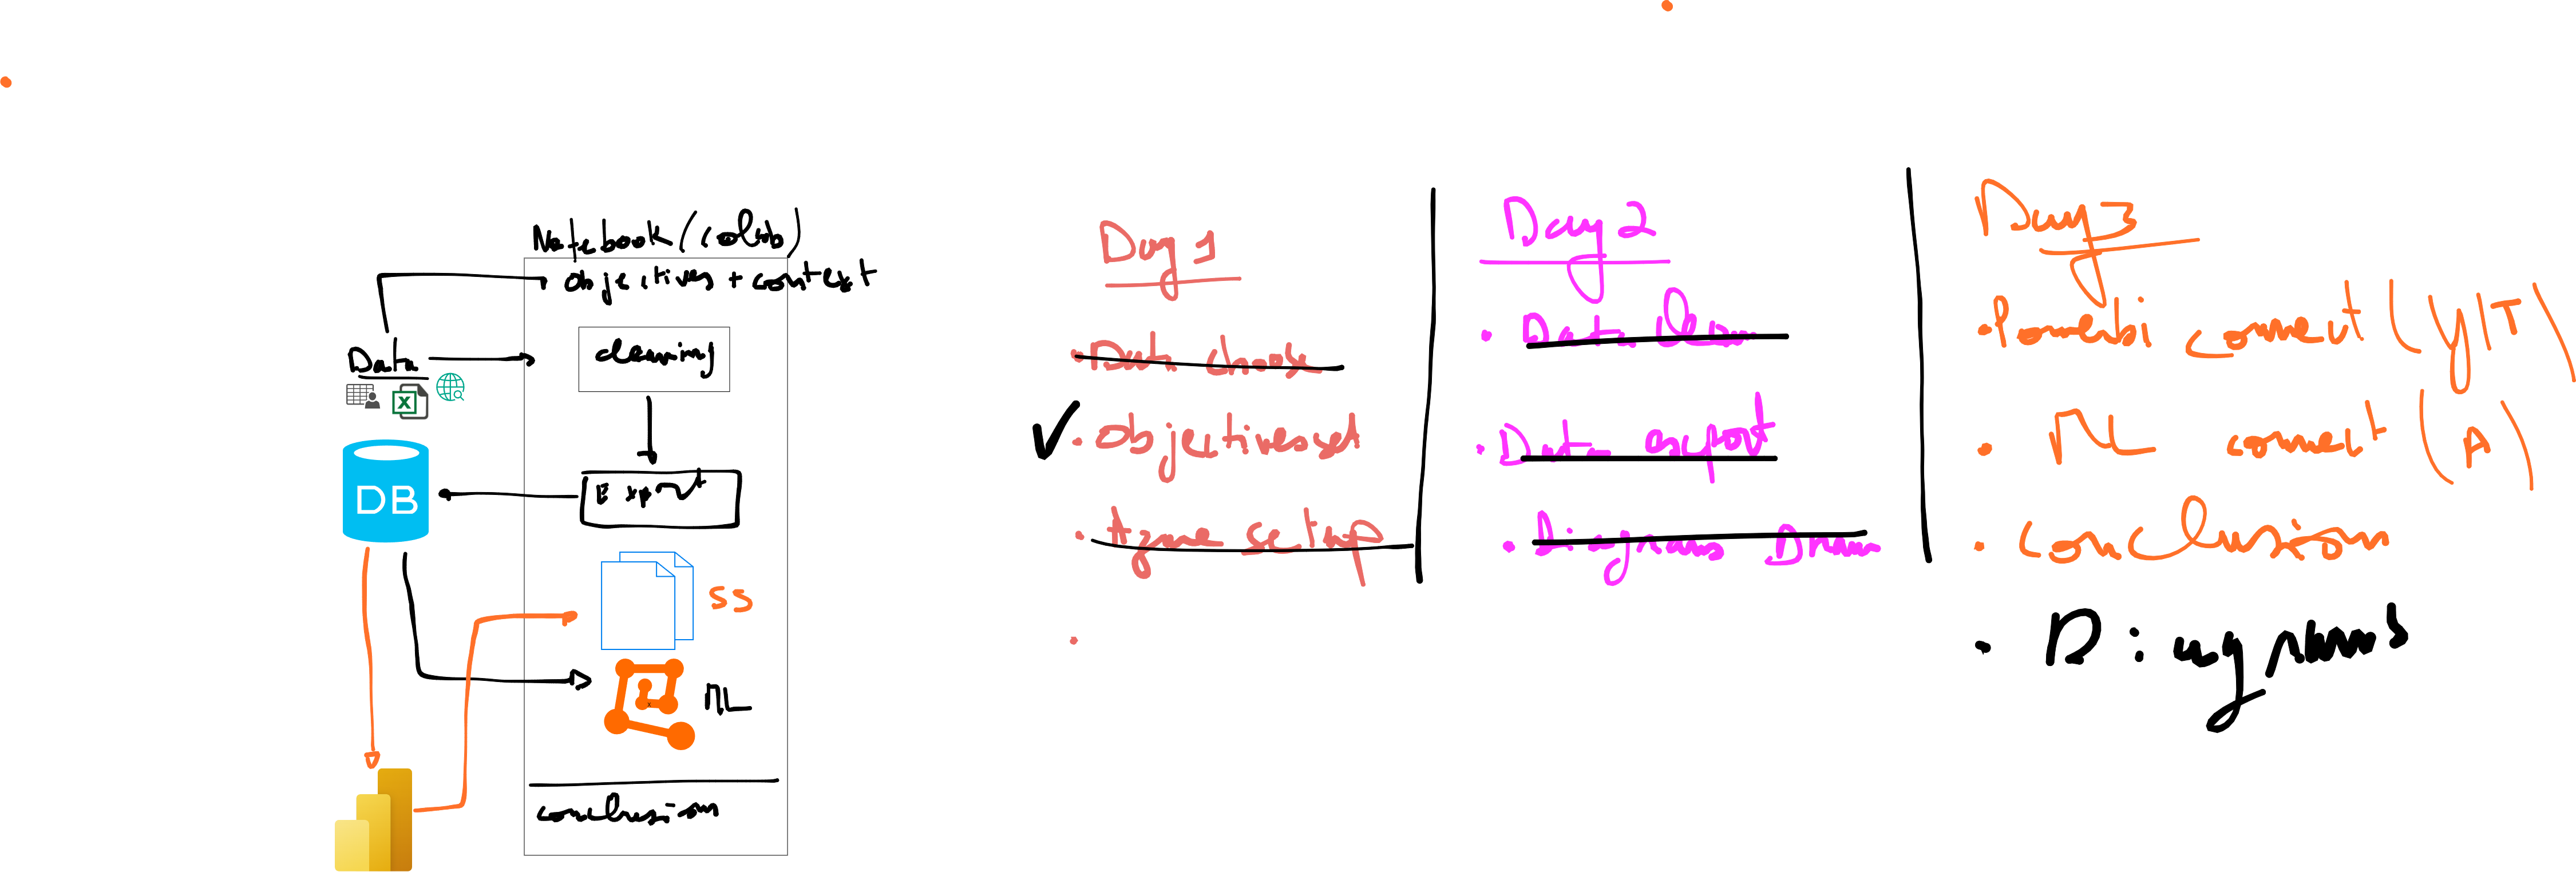 Notebook (colab)
objectives + context
Data
cleaning
DB
Export
SS
ML
conclusion
Day 1
• Data choose
• Objectives set
• Azure setup
•
Day 2
• Data Clean
• Data export
• Diagrams Draw
Day 3
• Powerbi connect (Y/T)
• ML connect (A)
• Conclusion
• Diagrams